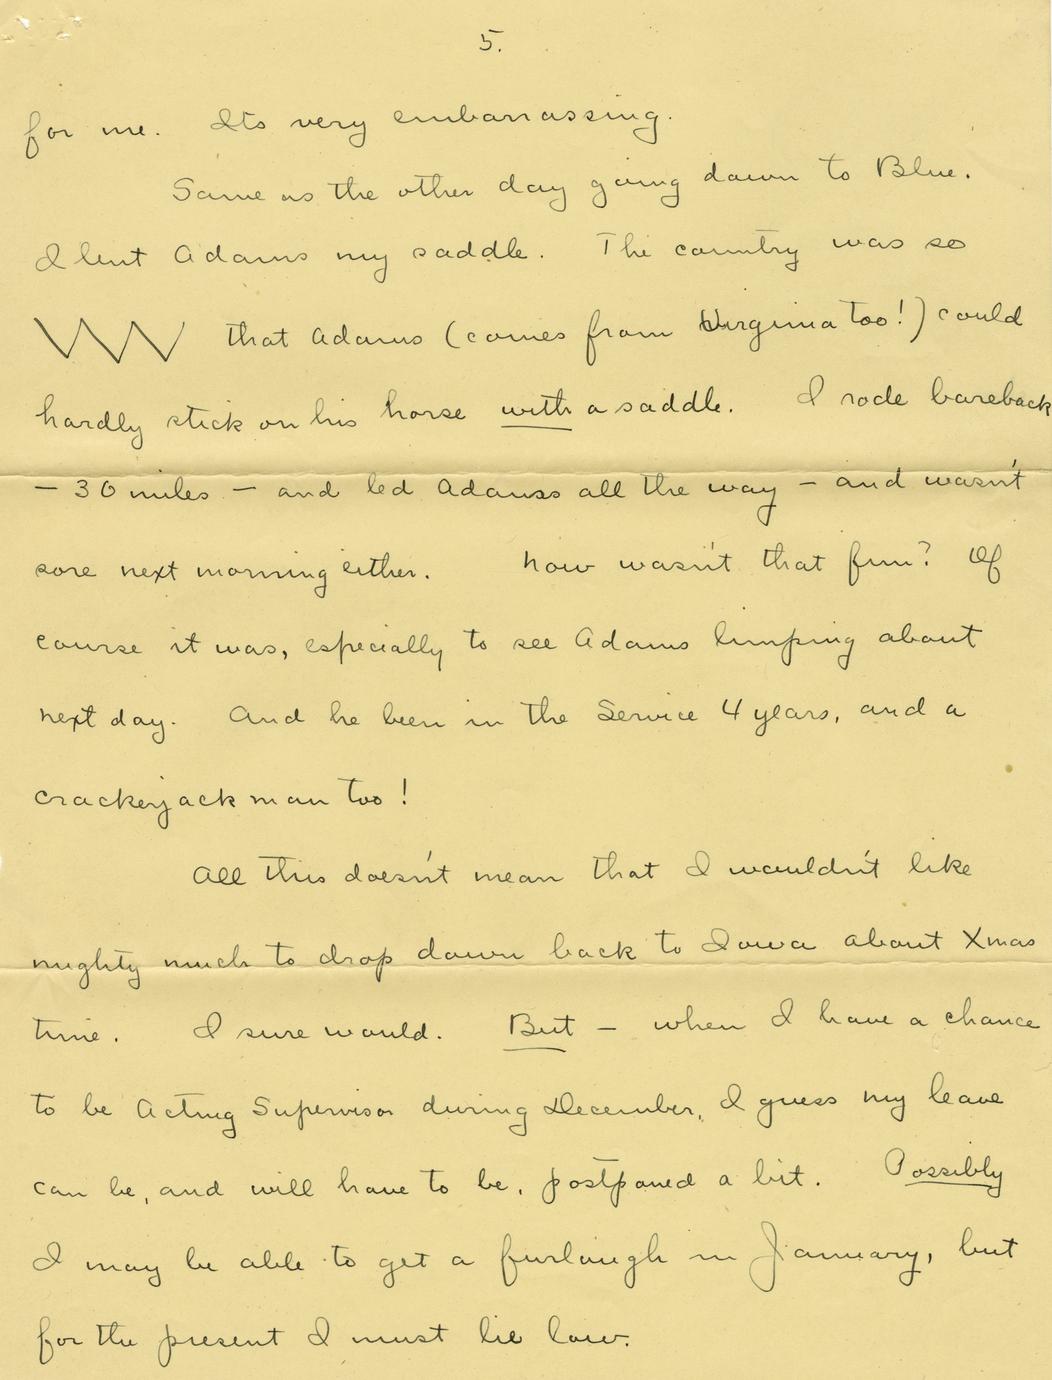 5.
for me. Its very embarrassing.
Same as the other day going down to Blue.
I lent Adams my saddle. The country was so
that Adams (comes from Virginia too!) could
hardly stick on his horse with a saddle. I rode bareback
— 30 miles — and led Adamss all the way — and wasn't
sore next morning either. Now wasn't that fun? Of
course it was, especially to see Adams limping about
next day. And he been in the Service 4 years, and a
crackerjack man too!
All this doesn't mean that I wouldn't like
mighty much to drop down back to Iowa about Xmas
time. I sure would. But — when I have a chance
to be Acting Supervisor during December, I guess my leave
can be, and will have to be, postponed a bit. Possibly
I may be able to get a furlough in January, but
for the present I must lie low.